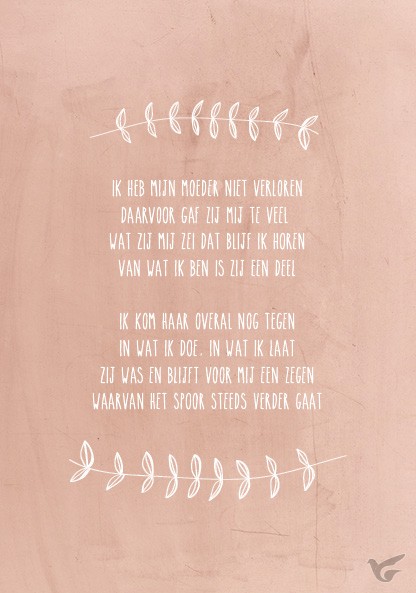 IK HEB MIJN MOEDER NIET VERLOREN
DAARVOOR GAF ZIJ MIJ TE VEEL
WAT ZIJ MIJ ZEI DAT BLIJF IK HOREN
VAN WAT IK BEN IS ZIJ EEN DEEL
IK KOM HAAR OVERAL NOG TEGEN
IN WAT IK DOE. IN WAT IK LAAT
ZIJ WAS EN BLIJFT VOOR MIJ EEN ZEGEN
WAARVAN HET SPOOR STEEDS VERDER GAAT